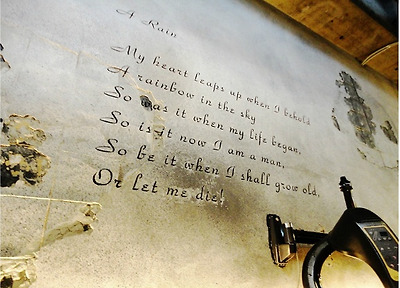 A Rain
My heart leaps up when I behold
A rainbow in the sky
So was it when my life began,
So is it now I am a man,
So be it when I shall grow old,
Or let me die!